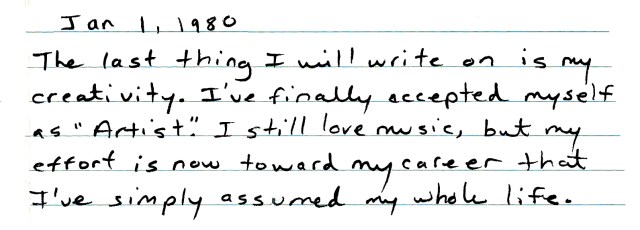 Jan 1, 1980
The last thing I will write on is my
creativity. I've finally accepted myself
as "Artist." I still love music, but my
effort is now toward my career that
I've simply assumed my whole life.